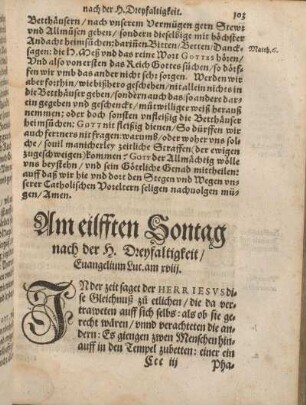 nach der H. Dreyfaltigkeit.
303
Betthäusern / nach vnserem Vermügen gern Stewr
vnd Allmůsen geben / sondern dieselbige mit höchster
Andacht heimsůchen: darinen Bitten: Betten: Danck-
sagen: die H. Meß vnd das reine Wort GOTTES hören /
Matth. 6.
Vnd also von ersten das Reich Gottes sůchen / so dörf-
fen wir vmb das ander nicht sehr sorgen. Werden wir
aber forthin / wie bißhero geschehen / mit allein nichts in
die Betthäuser geben / sondern auch das so andere dar-
ein gegeben vnd geschenckt / mütwilliger weiß herauß
nemmen: oder doch sonsten vnfleissig die Betthäuser
heimsůchen: GOTT nit fleissig dienen / So dürffen wir
auch ferrners nit fragen warumb oder woher vns sol-
che / souil manicherley zeitliche Straffen (der ewigen
zugeschweigen) kommen? GOTT der Allmächtig wölle
vns beystehn / vnd sein Göttliche Genad mittheilen:
auff daß wir hie vnd dort den Stegen vnd Wegen vn-
serer Catholischen Voreltern seligen nachuolgen mü-
gen / Amen.
Am eilfften Sontag
nach der H. Dreyfaltigkeit /
Euangelium Luc. am xviij.
IN der zeit saget der HERR IESVS di-
se Gleichnuß zů etlichen / die da ver-
traweten auff sich selbs: als ob sie ge-
recht wären / vnnd verachteten die an-
dern: Es giengen zwen Menschen hin-
auff in den Tempel zubetten: einer ein
Ccc iij
Pha-